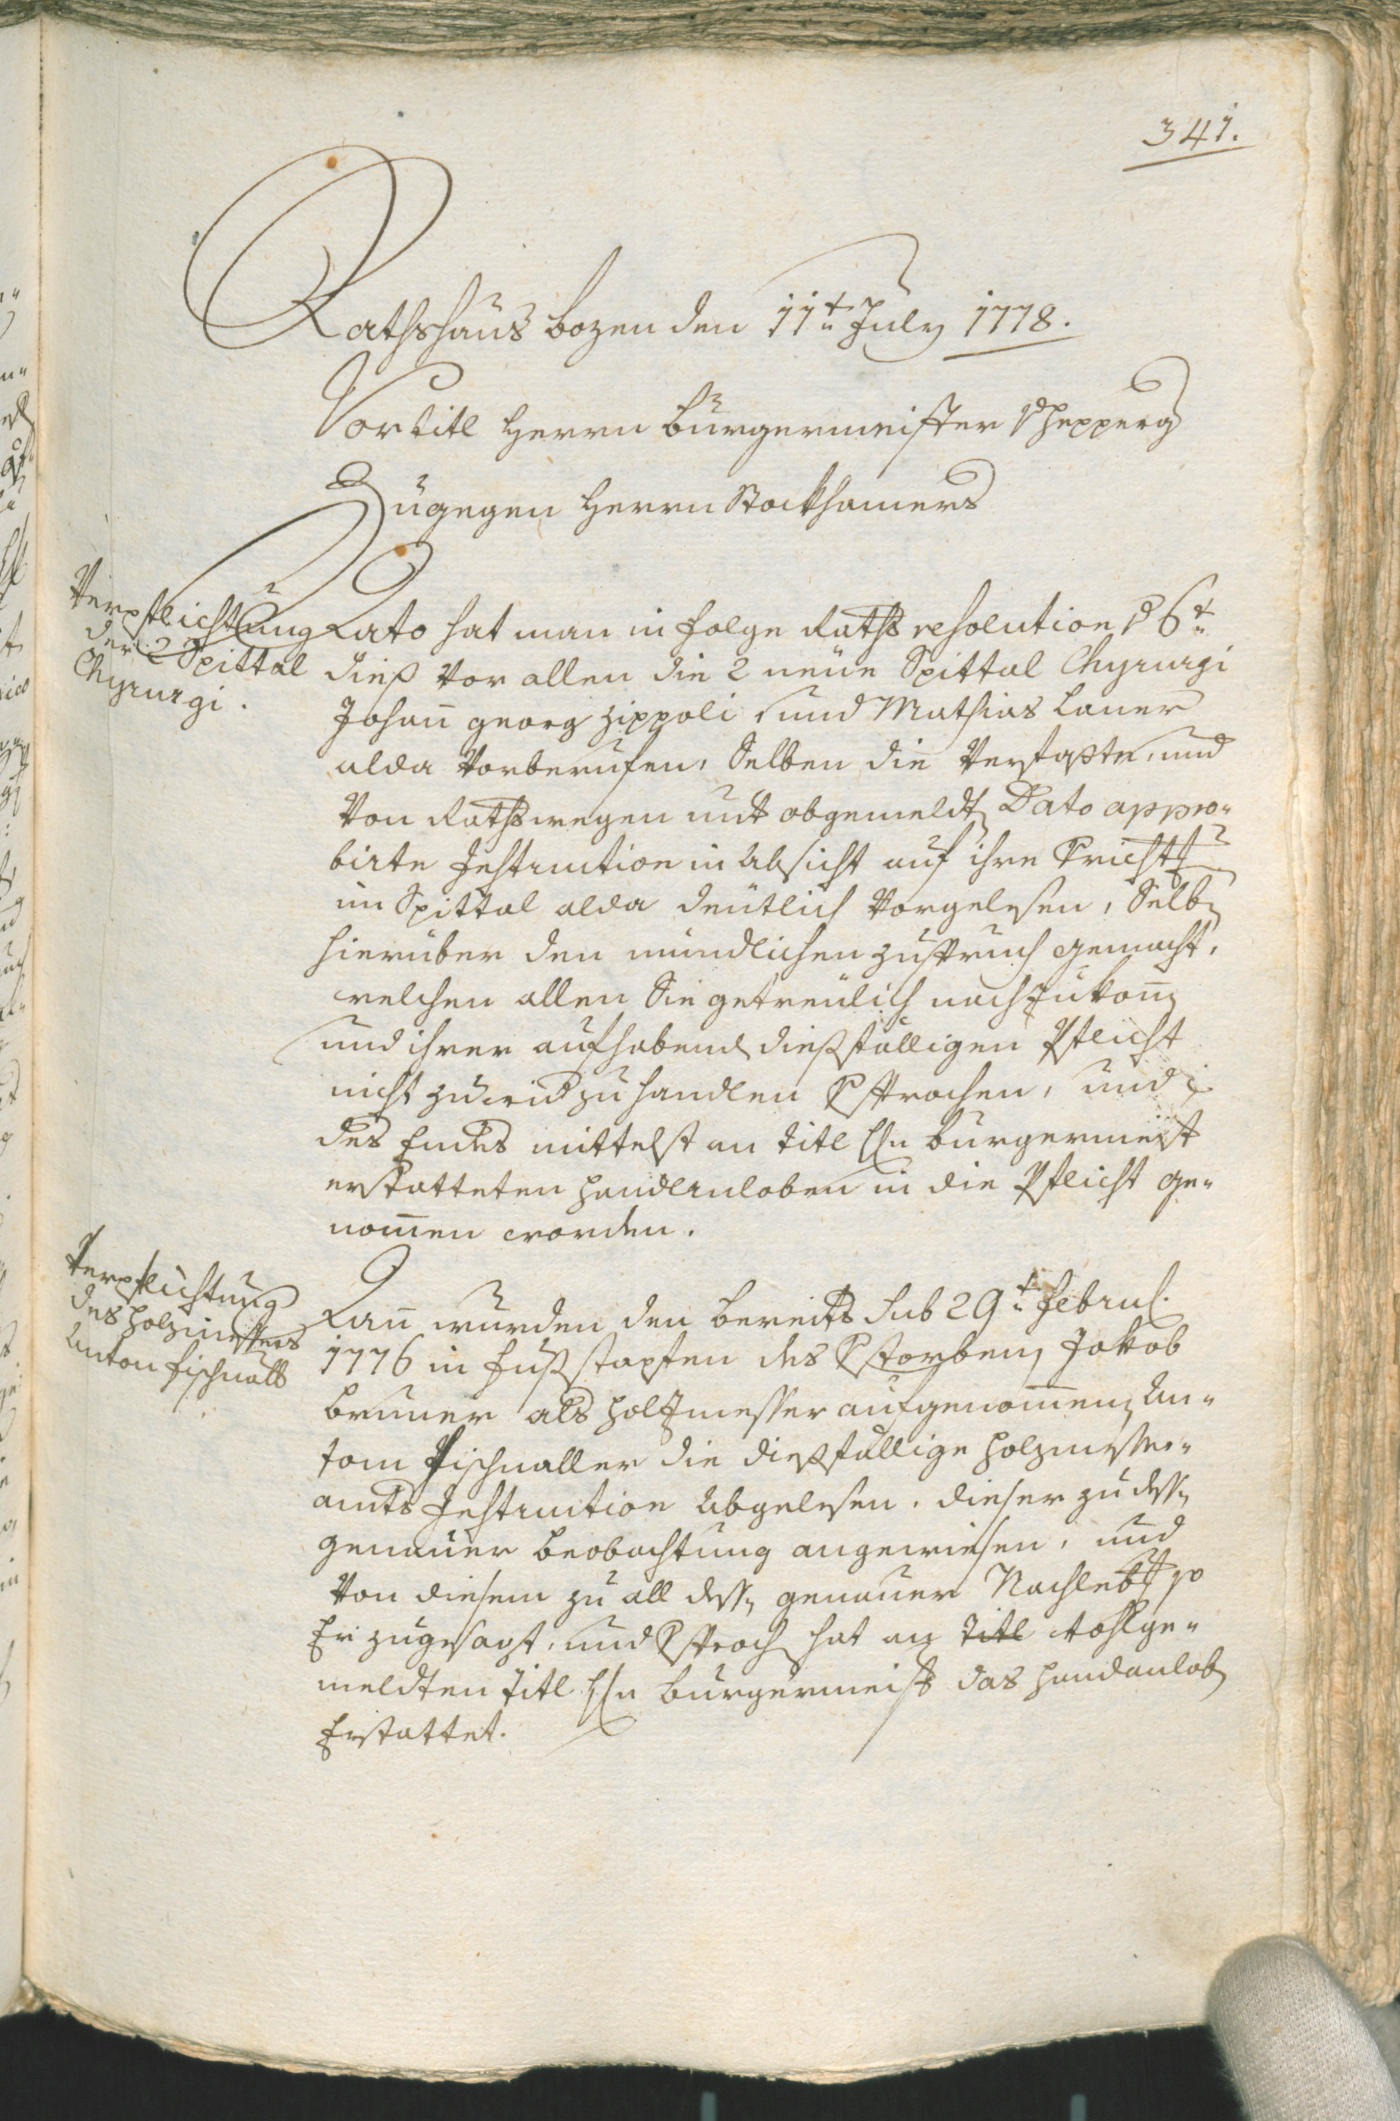 341.
Rathshaus bozen den 11t July 1778.
Vor titl Herrn Bürgermeister
Zugegen Herrn Stockhamers
Verpflichtung
der 2 Spittal
Chyrurgi.
Dato hat man in Folge Raths resolution d 6t
dieß Vor allen die 2 neue Spittal Chyrurgi
Johan̄ georg zippoli, und Mathias Laner
alda Vorberufen, Selben die Verfaßte, und
Von Rathswegen mit obgemeldt Dato appro-
birte Instruction in Absicht auf ihre
im Spittal alda deutlich Vorgelesen, Selb
hierüber den mündlichen zuspruch gemacht,
welchen allen Sie getreülich nachzukom̄
und ihrer aufhabend dießfälligen Pflicht
nicht zuwid zu handlen Psprochen, und
des Endes mittelst an titl Hn bürgermeist
erstatteten Handanloben in die Pflicht ge-
nom̄en worden.
Verpflichtung
des Holzmessers
Anton fischnall
Dan̄ wurden den bereits Sub 29t Februl.
1776 in Fußstapfen des Pstorben Jakob
bruner als Holzmesser aufgenom̄en An-
tom Fischnaller die dießfällige Holzmesser-
amts Instruction Abgelesen, dieser zu dess
genauer beobachtung angewiesen, und
Von diesem zu all dess genauer Nachleb so
Er zugesagt, und Psproch hat an titl wohlge-
meldten titl Hn bürgermeist das Handanlob
Erstattet.